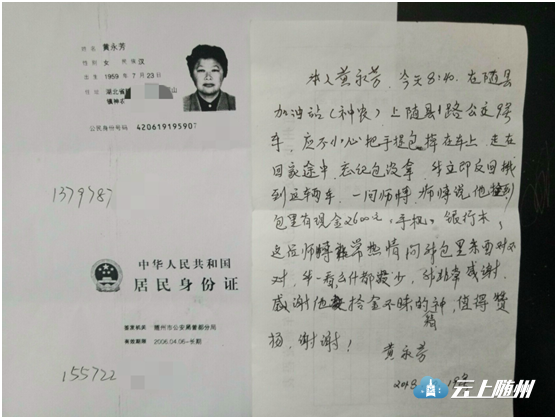 姓名 黄永芳
性别 女 民族 汉
出生 1959 年 7 月 23 日
住址 湖北省
山
镇神农
公民身份号码 420619195907
1379787
中华人民共和国
居民身份证
签发机关 随州市公安局曾都分局
有效期限 2006.04.06-长期
155722
本人黄永芳，今天8:40，在随县
加油站（神农）上随县1路公交9号
车，应不小心把手提包掉在车上，走在
回家途中，忘记包没拿，我立即反回找
到这辆车，一问师傅，师傅说他捡到
包里有现金2600元，手机，银行卡，
这位师傅非常热情问我包里东西对不
对，我一看么什都没少，我非常感谢，
感谢他拾金不昧的精神，值得赞
扬，谢谢！
黄永芳
2018
云上随州